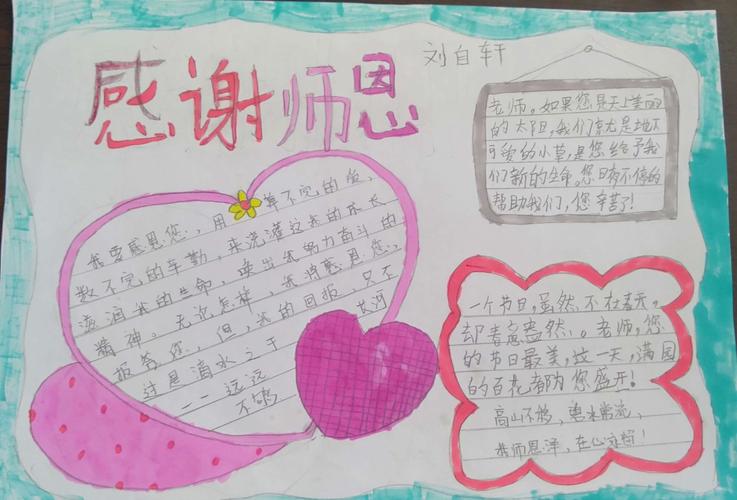 感谢师恩
刘自轩
我要感恩您,用算不完的爱,
数不完的辛勤,来浇灌这我的成长
滋润我的生命,唤出我努力奋斗的
精神。无论怎样,我将感恩您,
报答您,但,我的回报,只不
过是滴水之于长河
——远远
不够
老师。如果您是天上美丽
的太阳,我们就是地下
可爱的小草,是您给予我
们新的生命。您日夜不停的
帮助我们,您辛苦了!
一个节日,虽然不在春天。
却春意盎然。老师,您
的节日最美,这一天,满园
的百花都为您盛开!
高山不移,碧水常流,
我师恩泽,在心永恒!